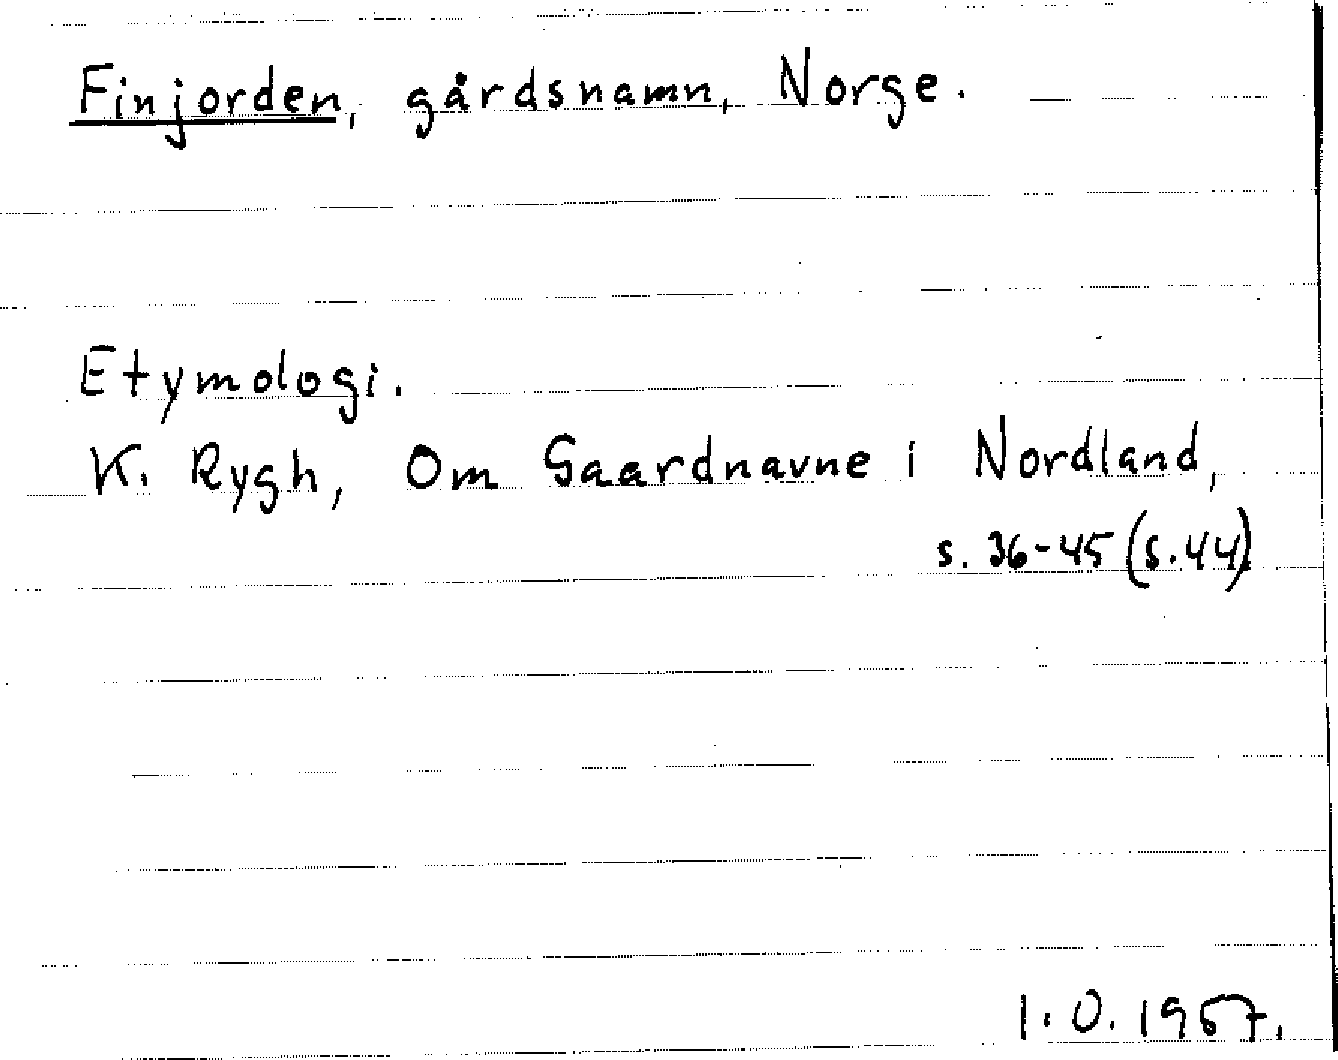 Finjorden, gårdsnamn, Norge.
Etymologi.
K. Rygh, Om Gaardnavne i Nordland,
s. 36-45 (s. 44)
I. O. 1957.